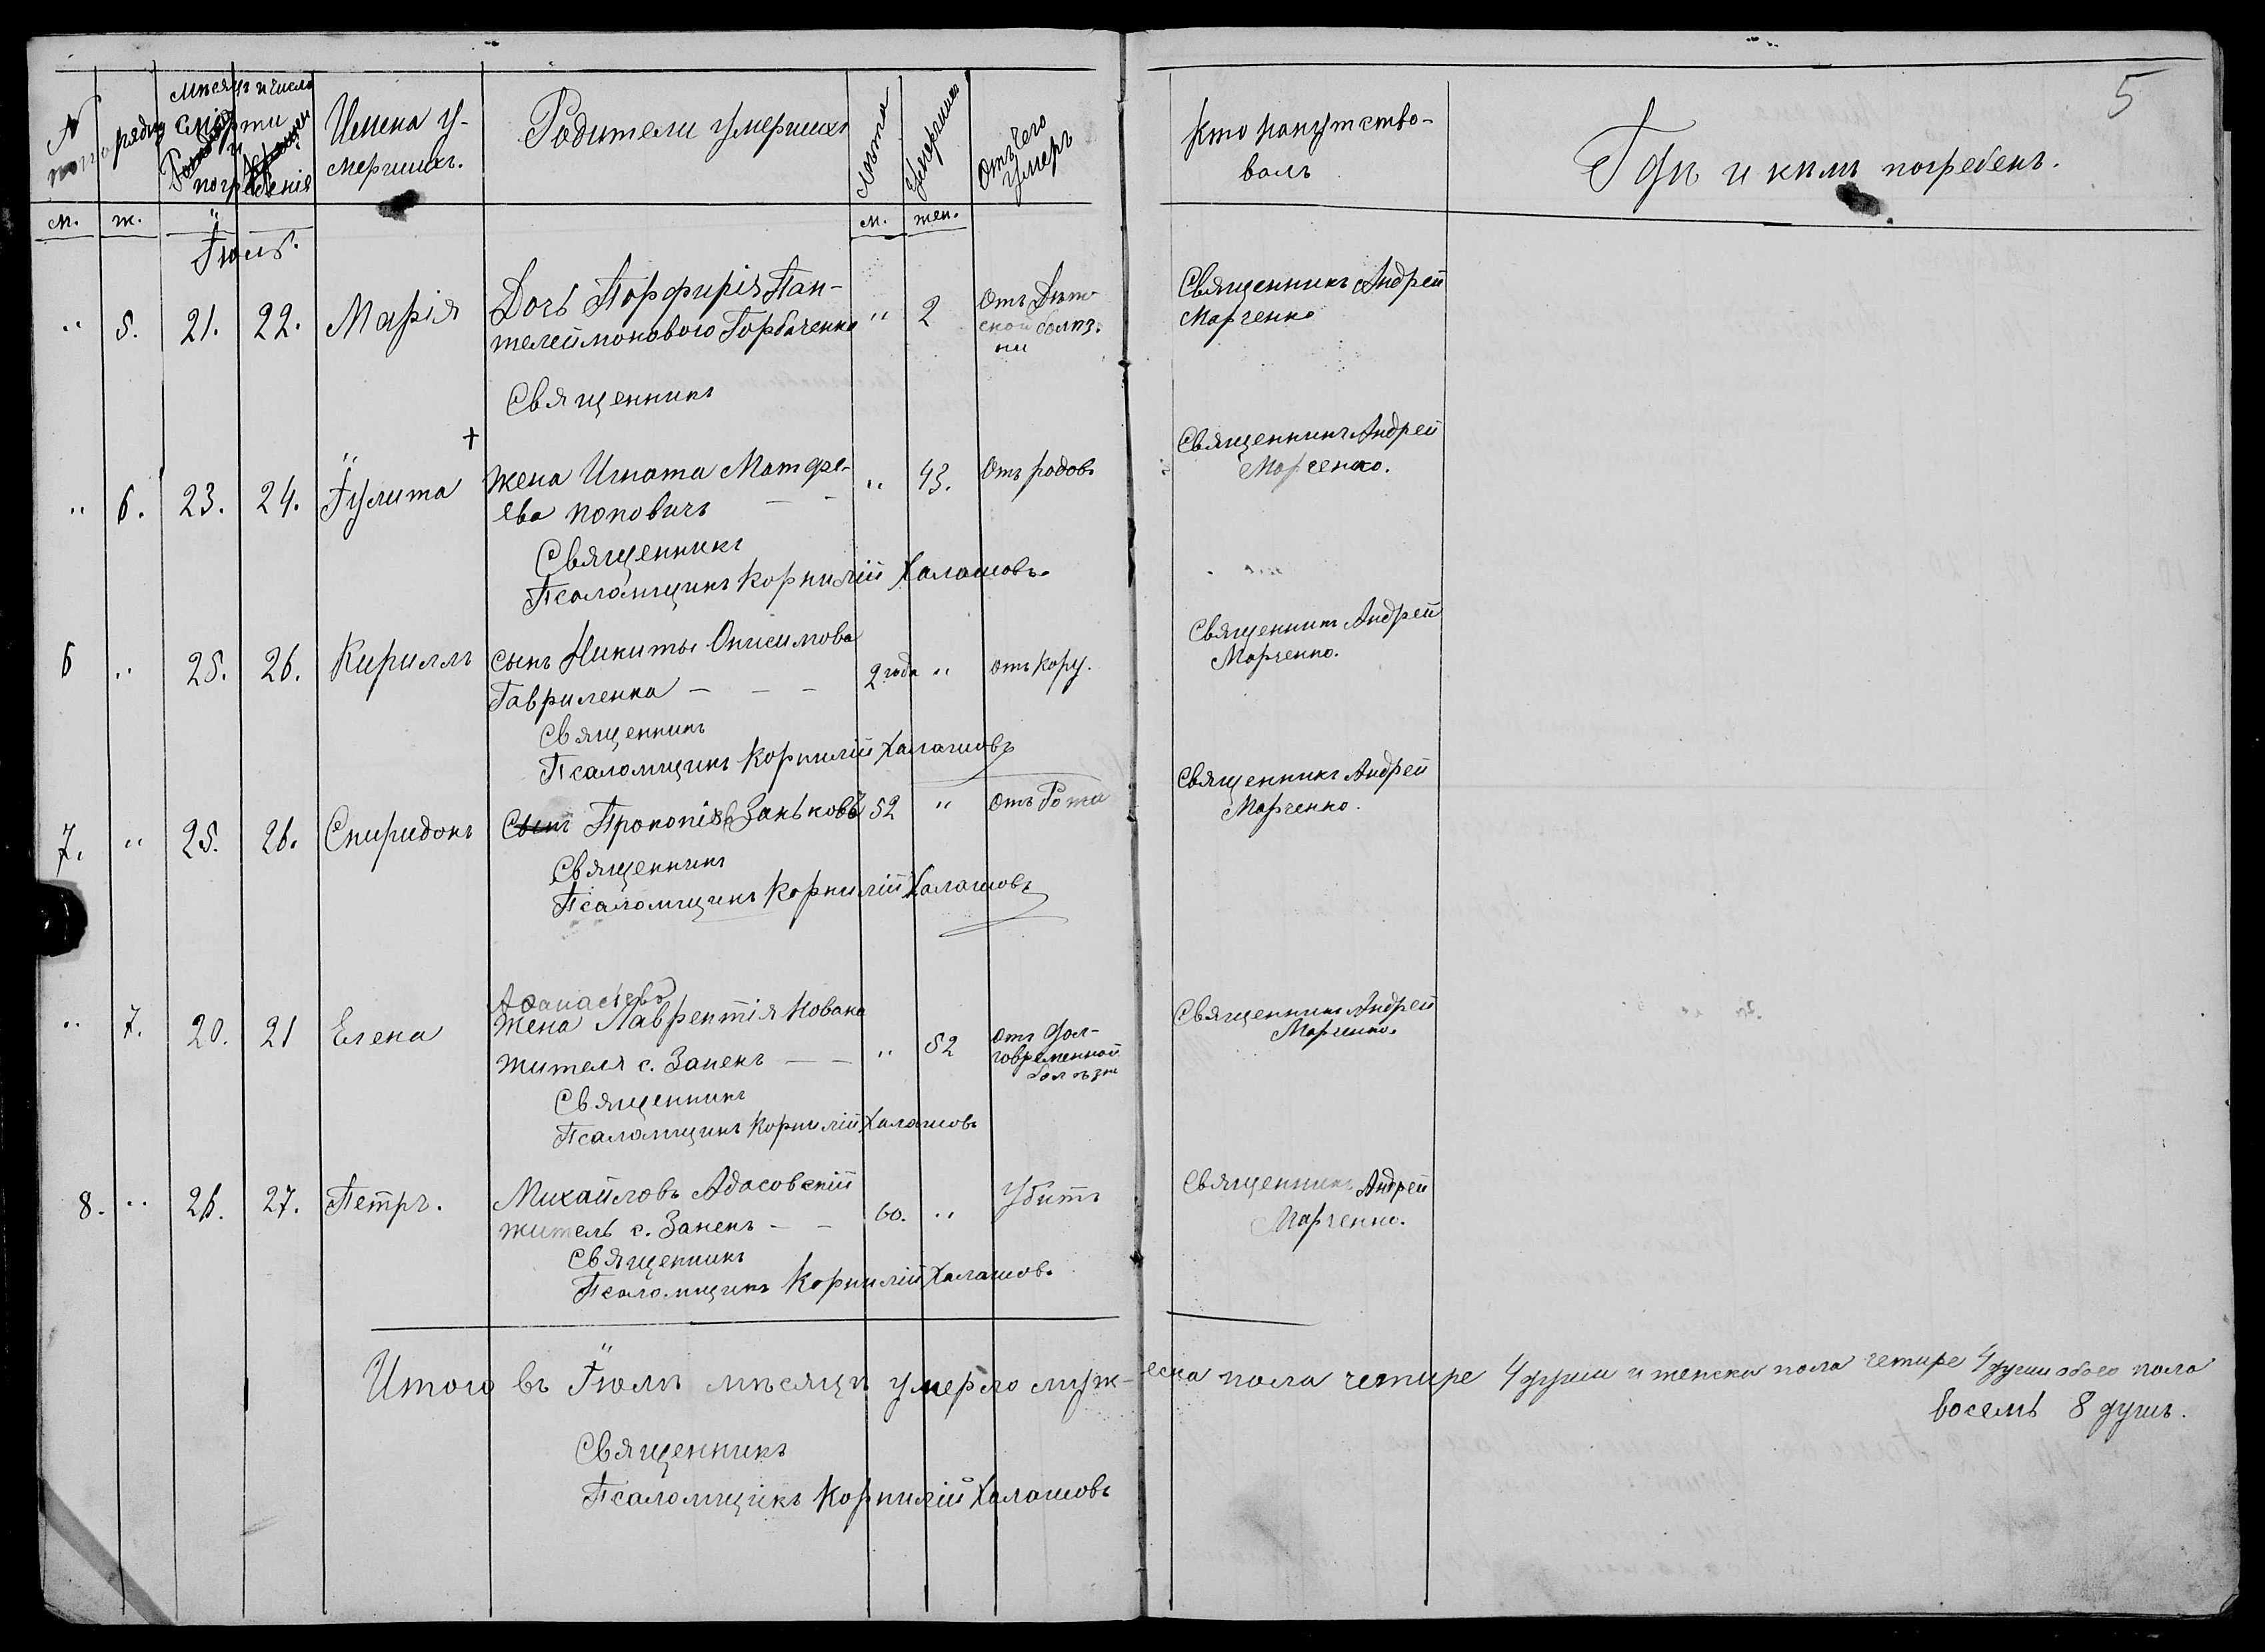 5
№ по порядку
Мѣсяцъ и число
смерти и
погребенія
Имена у-
мершихъ.
Родители умершихъ
Лѣта
Умершихъ
Отъ чего
умеръ
Кто напутство-
валъ
Гдѣ и кѣмъ погребенъ.
м. ж. м. жен.
Іюль.
" 5. 21. 22. Марія
Дочь Порфирія Пан-
телеймонового Горбаченка " 2
Отъ Дѣт
ской болѣз.
ни
Священникъ Андрей
Марченко
Священникъ
+
" 6. 23. 24. Іулита
Жена Игната Матфе-
ева Поповичъ — — " 43. Отъ родовъ
Священникъ Андрей
Марченко.
Священникъ
Псаломщикъ Корнилій Халашовъ.
6 " 25. 26. Кириллъ
сынъ Никиты Онисимова
Гавриленка — — — 2 года " отъ кору.
Священникъ Андрей
Марченко.
Священникъ
Псаломщикъ Корнилій Халашовъ
7. " 25. 26. Спиридонъ
Сынъ Прокопіевъ Заньковъ 52 " Отъ Рожи
Священникъ Андрей
Марченко.
Священникъ
Псаломщикъ Корнилій Халашовъ
Аѳанасіева
" 7. 20. 21 Елена
Жена Лаврентія Кована
жителя с. Занекъ — — " 52
Отъ дол-
говременной
болѣзни
Священникъ Андрей
Марченко.
Священникъ
Псаломщикъ Корнилій Халашовъ
8. " 26. 27. Петръ.
Михайловъ Адасовскій
житель с. Занекъ — — 60. " Убитъ
Священникъ Андрей
Марченко.
Священникъ
Псаломщикъ Корнилій Халашовъ.
Итого въ Іюлѣ мѣсяцѣ умерло муж-еска пола четире 4 души и женска пола четире 4 души обоего пола
восемь 8 душъ.
Священникъ
Псаломщикъ Корнилій Халашовъ